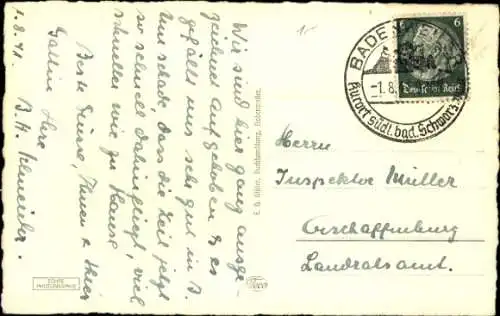 1.8.41.
Wir sind hier ganz ausge-
zeichnet aufgehoben & es
gefällt uns sehr gut in B.
Nun schade dass die Zeit jetzt
so schnell dahinfliegt, viel
schneller wie zu Hause
Beste Grüsse, Ihnen & Ihrer
Gattin Ihre
Herrn
Inspektor Müller
Aschaffenburg
Landratsamt.
BADE
-1.8.
Kurort südl. bad. Schwarz
6
Deutsches Reich
ECHTE
PHOTOGRAPHIE